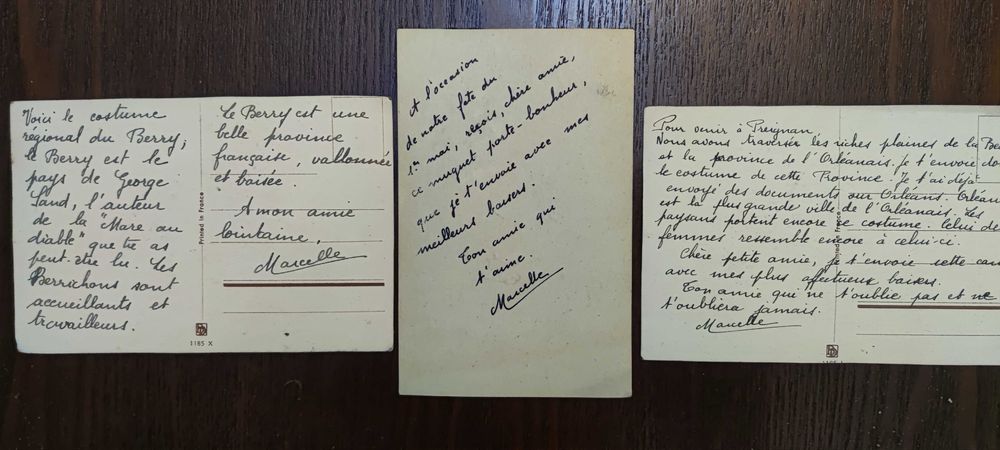 Voici le costume
régional du Berry,
le Berry est le
pays de George
Sand, l'auteur
de la "Mare au
diable" que tu as
peut-être lu. Les
Berrichons sont
accueillants et
travailleurs.
Le Berry est une
belle province
française, vallonnée
et boisée.
A mon amie
lointaine,
Marcelle
Printed in France
1185 X
A l'occasion
de notre fête du
1er mai, reçois, chère amie,
ce muguet porte-bonheur,
que je t'envoie avec mes
meilleurs baisers.
Ton amie qui
t'aime.
Marcelle
Pour venir à Preignan,
Nous avons traverser les riches plaines de la
et la province de l'Orléanais. Je t'envoie
le costume de cette Province. Je t'ai déjà
envoyé des documents sur Orléans.
est la plus grande ville de l'Orléanais. Les
paysans portent encore ce costume. Celui
femmes ressemble encore à celui-ci.
Chère petite amie, je t'envoie cette
avec mes plus affectueux baisers.
Ton amie qui ne t'oublie pas et ne
t'oubliera jamais.
Marcelle
Printed in France